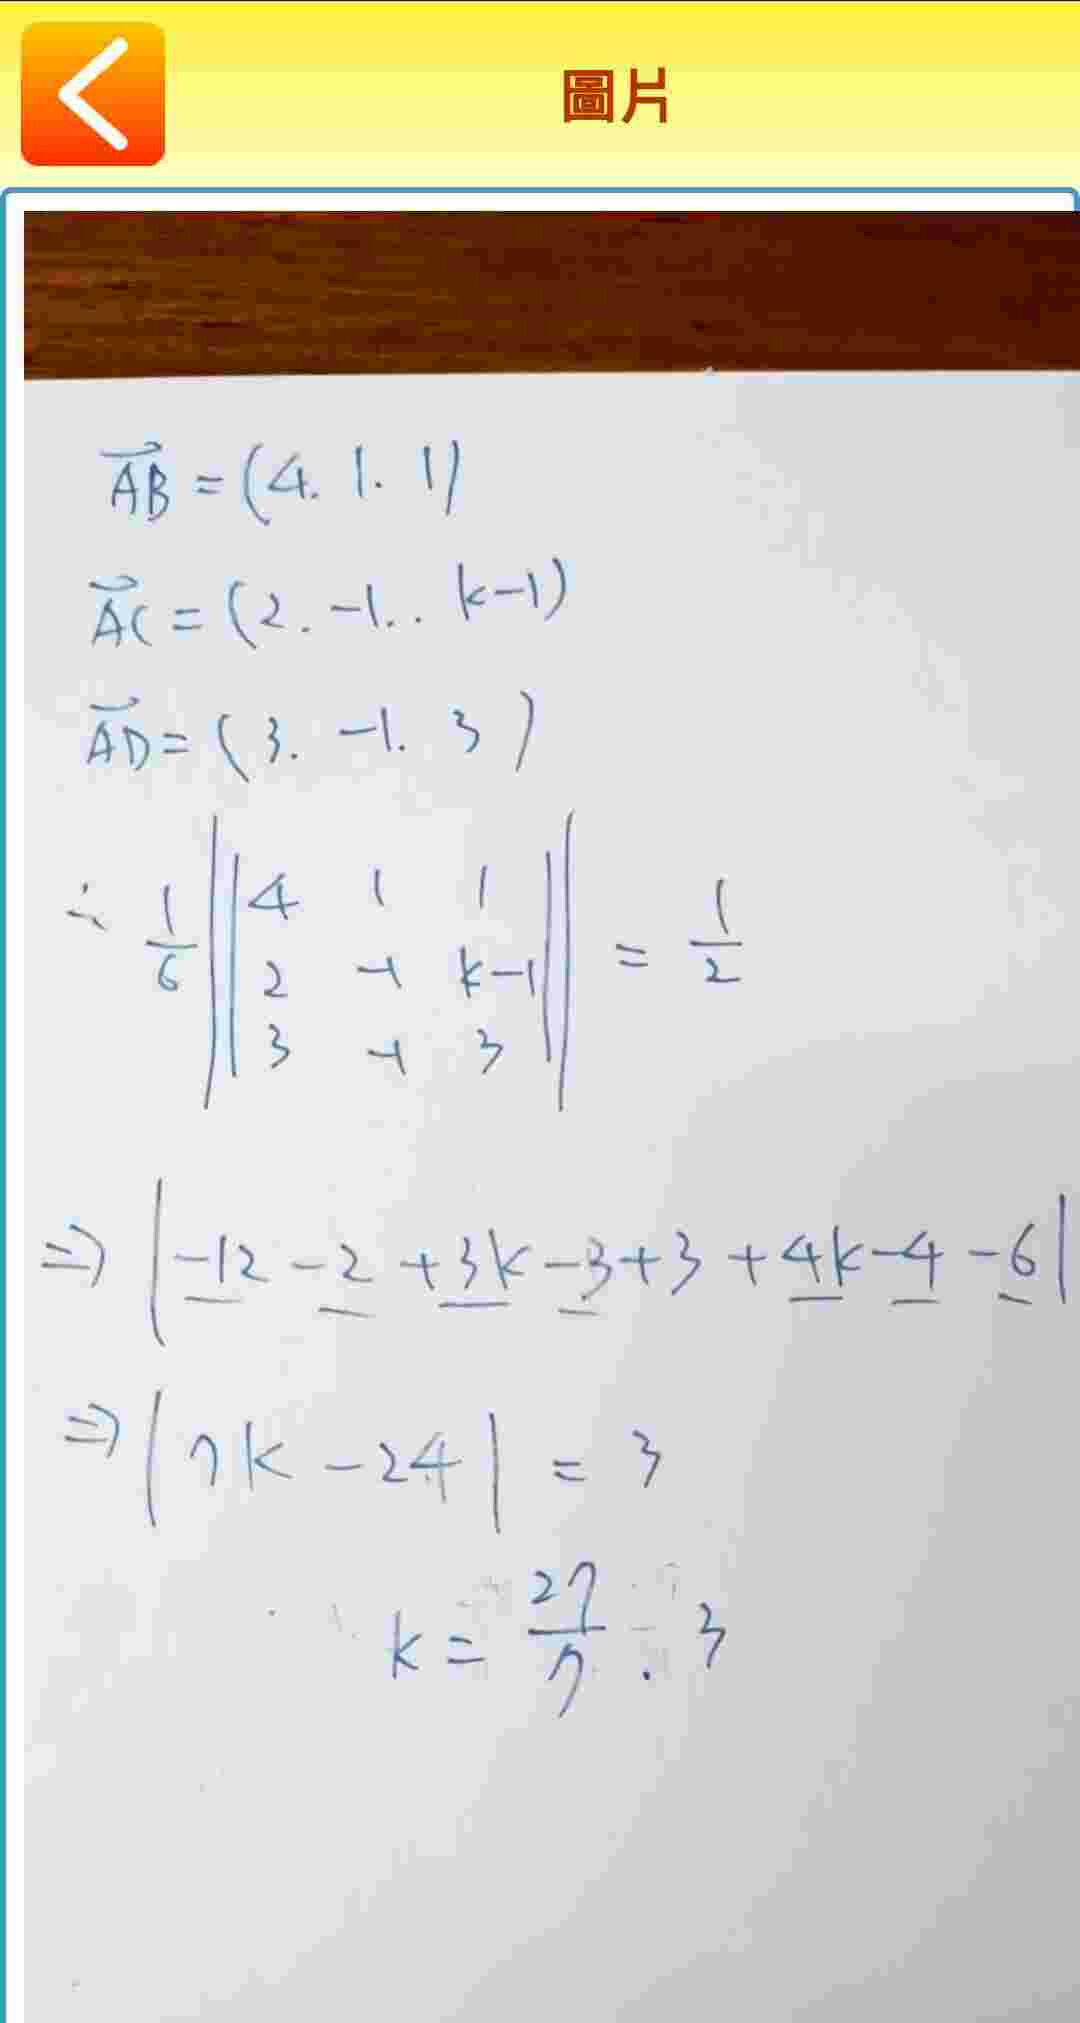 圖片
AB = (4. 1. 1)
AC = (2. -1.. k-1)
AD = (3. -1. 3)
∴ 1/6 || 4 1 1
2 -1 k-1
3 -1 3 || = 1/2
⇒ |-12 -2 +3k -3 +3 +4k -4 -6|
⇒ |7k - 24| = 3
k = 27/7 . 3